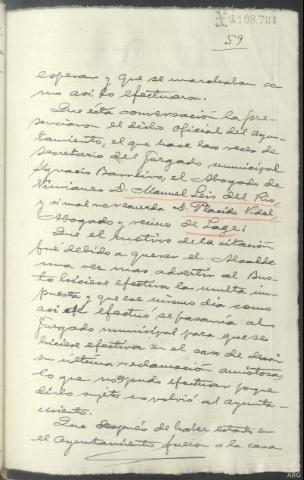 9.108.784
59
esperar y que se marchaban co
mo así lo efectuaron.
Que ésta conversación la pre-
senciaron el dicho oficial del ayun-
tamiento, el que hace las veces de
Secretario del Juzgado municipal
Ignacio Bamiro, el Abogado de
Vimianzo D. Manuel Leis del Río,
y si mal no recuerda D. Placido Vidal,
Abogado y vecino de Lage.
Que el motivo de la citación
fué debido a querer el Alcalde
una vez mas advertir al
hiciese efectiva la multa im
puesta y que ese mismo día como
así se efectuó se pasaría al
Juzgado municipal para que se
hiciese efectiva en el caso de desoir
su última reclamación amistosa
lo que no pudo efectuar porque
dicho sujeto no volvió al ayunta-
miento.
Que después de haber estado en
el Ayuntamiento fueron a la casa
ARG